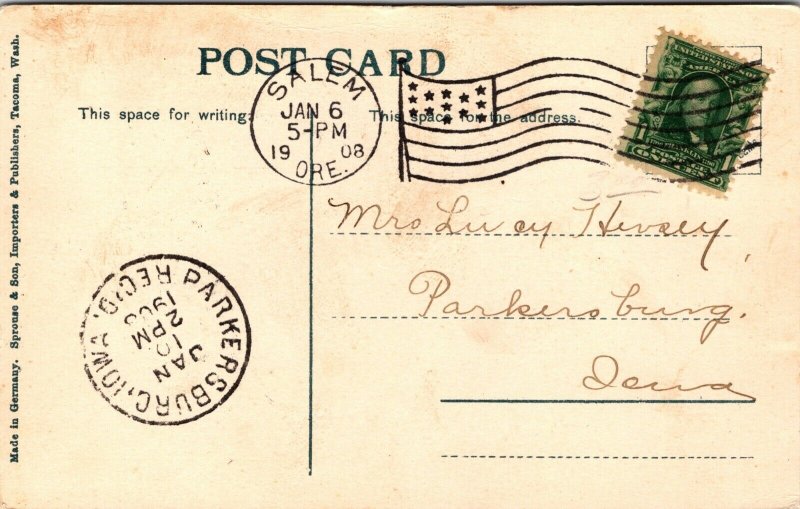 POST CARD
This space for writing.
This space for the address.
SALEM
JAN 6
5-PM
1908
ORE.
Mrs Lucy Hersey,
Parkersburg.
Iowa
PARKERSBURG, IOWA REC'D.
JAN
10
2 PM
1908
Made in Germany. Sprouse & Son, Importers & Publishers, Tacoma, Wash.